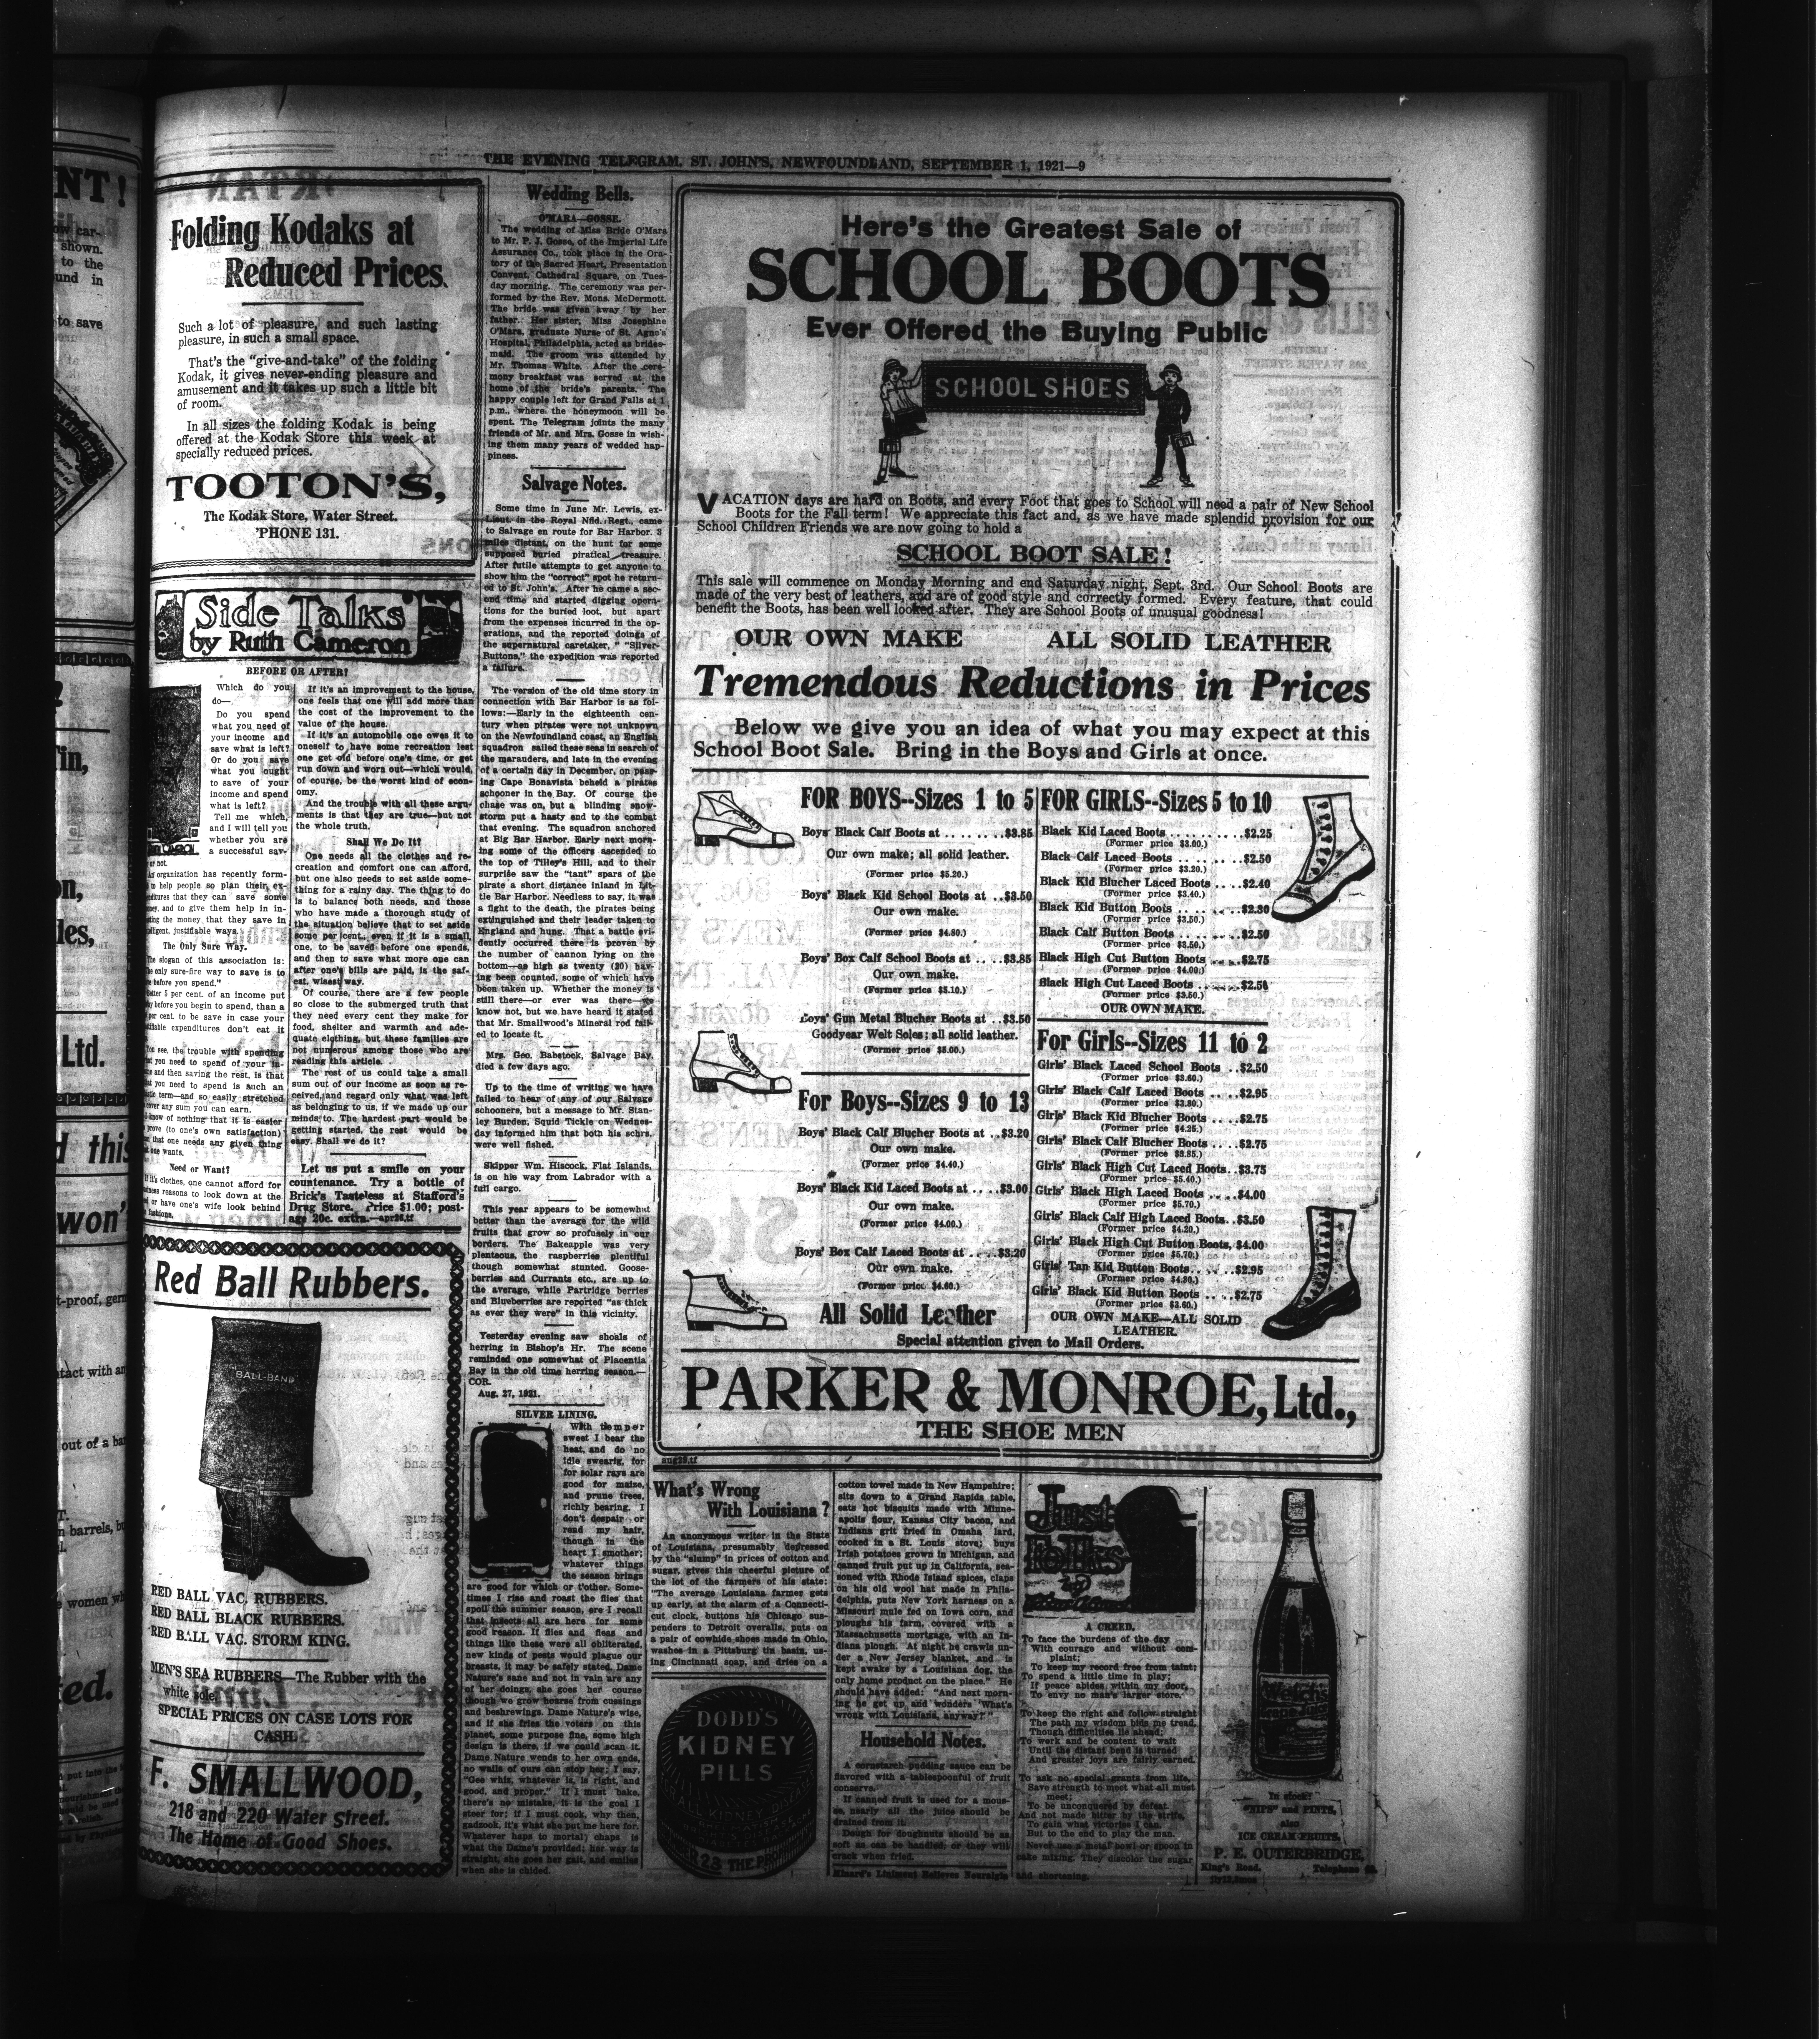 THE EVENING TELEGRAM, ST. JOHN'S, NEWFOUNDLAND, SEPTEMBER 1, 1921—9
Folding Kodaks at
Reduced Prices.
Such a lot of pleasure, and such lasting
pleasure, in such a small space.
That's the "give-and-take" of the folding
Kodak, it gives never-ending pleasure and
amusement and it takes up such a little bit
of room.
In all sizes the folding Kodak is being
offered at the Kodak Store this week at
specially reduced prices.
TOOTON'S,
The Kodak Store, Water Street.
'PHONE 131.
Side Talks
by Ruth Cameron
BEFORE OR AFTER?
Which do you
do—
Do you spend
what you need of
your income and
save what is left?
Or do you save
what you ought
to save of your
income and spend
what is left?
Tell me which,
and I will tell you
whether you are
a successful sav-
er or not.
organization has recently form-
to help people so plan their ex-
that they can save some
and to give them help in in-
the money that they save in
justifiable ways.
The Only Sure Way.
The slogan of this association is:
only sure-fire way to save is to
before you spend."
5 per cent. of an income put
before you begin to spend, than a
per cent. to be save in case your
expenditures don't eat it
see, the trouble with spending
you need to spend of your in-
and then saving the rest, is that
you need to spend is such an
term—and so easily stretched
cover any sum you can earn.
know of nothing that it is easier
prove (to one's own satisfaction)
that one needs any given thing
one wants.
Need or Want?
If it's clothes, one cannot afford for
reasons to look down at the
or have one's wife look behind
fashions.
If it's an improvement to the house,
one feels that one will add more than
the cost of the improvement to the
value of the house.
If it's an automobile one owes it to
oneself to have some recreation lest
one get old before one's time, or get
run down and worn out—which would,
of course, be the worst kind of econ-
omy.
And the trouble with all these argu-
ments is that they are true—but not
the whole truth.
Shall We Do It?
One needs all the clothes and re-
creation and comfort one can afford,
but one also needs to set aside some-
thing for a rainy day. The thing to do
is to balance both needs, and those
who have made a thorough study of
the situation believe that to set aside
some per cent., even if it is a small
one, to be saved before one spends,
and then to save what more one can
after one's bills are paid, is the saf-
est, wisest way.
Of course, there are a few people
so close to the submerged truth that
they need every cent they make for
food, shelter and warmth and ade-
quate clothing, but these families are
not numerous among those who are
reading this article.
The rest of us could take a small
sum out of our income as soon as re-
ceived, and regard only what was left
as belonging to us, if we made up our
minds to. The hardest part would be
getting started, the rest would be
easy. Shall we do it?
Let us put a smile on your
countenance. Try a bottle of
Brick's Tasteless at Stafford's
Drug Store. Price $1.00; post-
age 20c. extra.—apr26,tf
Red Ball Rubbers.
BALL-BAND
RED BALL VAC. RUBBERS.
RED BALL BLACK RUBBERS.
RED BALL VAC. STORM KING.
MEN'S SEA RUBBERS—The Rubber with the
white sole.
SPECIAL PRICES ON CASE LOTS FOR
CASH.
F. SMALLWOOD,
218 and 220 Water Street.
The Home of Good Shoes.
Wedding Bells.
O'MARA—GOSSE.
The wedding of Miss Bride O'Mara
to Mr. P. J. Gosse, of the Imperial Life
Assurance Co., took place in the Ora-
tory of the Sacred Heart, Presentation
Convent, Cathedral Square, on Tues-
day morning. The ceremony was per-
formed by the Rev. Mons. McDermott.
The bride was given away by her
father. Her sister, Miss Josephine
O'Mara, graduate Nurse of St. Agne's
Hospital, Philadelphia, acted as brides-
maid. The groom was attended by
Mr. Thomas White. After the cere-
mony breakfast was served at the
home of the bride's parents. The
happy couple left for Grand Falls at 1
p.m., where the honeymoon will be
spent. The Telegram joints the many
friends of Mr. and Mrs. Gosse in wish-
ing them many years of wedded hap-
piness.
Salvage Notes.
Some time in June Mr. Lewis, ex-
Lieut. in the Royal Nfld. Regt., came
to Salvage en route for Bar Harbor, 3
miles distant, on the hunt for some
supposed buried piratical treasure.
After futile attempts to get anyone to
show him the "correct" spot he return-
ed to St. John's. After he came a sec-
ond time and started digging opera-
tions for the buried loot, but apart
from the expenses incurred in the op-
erations, and the reported doings of
the supernatural caretaker, " "Silver-
Buttons," the expedition was reported
a failure.
The version of the old time story in
connection with Bar Harbor is as fol-
lows:—Early in the eighteenth cen-
tury when pirates were not unknown
on the Newfoundland coast, an English
squadron sailed these seas in search of
the marauders, and late in the evening
of a certain day in December, on pass-
ing Cape Bonavista beheld a pirates
schooner in the Bay. Of course the
chase was on, but a blinding snow-
storm put a hasty end to the combat
that evening. The squadron anchored
at Big Bar Harbor. Early next morn-
ing some of the officers ascended to
the top of Tilley's Hill, and to their
surprise saw the "tant" spars of the
pirate a short distance inland in Lit-
tle Bar Harbor. Needless to say, it was
a fight to the death, the pirates being
extinguished and their leader taken to
England and hung. That a battle evi-
dently occurred there is proven by
the number of cannon lying on the
bottom—as high as twenty (20) hav-
ing been counted, some of which have
been taken up. Whether the money is
still there—or ever was there—we
know not, but we have heard it stated
that Mr. Smallwood's Mineral rod fail-
ed to locate it.
Mrs. Geo. Babstock, Salvage Bay,
died a few days ago.
Up to the time of writing we have
failed to hear of any of our Salvage
schooners, but a message to Mr. Stan-
ley Burden, Squid Tickle on Wednes-
day informed him that both his schrs.
were well fished.
Skipper Wm. Hiscock, Flat Islands,
is on his way from Labrador with a
full cargo.
This year appears to be somewhat
better than the average for the wild
fruits that grow so profusely in our
borders. The Bakeapple was very
plenteous, the raspberries plentiful
though somewhat stunted. Goose-
berries and Currants etc., are up to
the average, while Partridge berries
and Blueberries are reported "as thick
as ever they were" in this vicinity.
Yesterday evening saw shoals of
herring in Bishop's Hr. The scene
reminded one somewhat of Placentia
Bay in the old time herring season.—
COR.
Aug. 27, 1921.
SILVER LINING.
With temper
sweet I bear the
heat, and do no
idle swearig, for
for solar rays are
good for maize,
and prune trees,
richly bearing. I
don't despair or
read my hair,
though in the
heart I smother;
whatever things
the season brings
are good for which or t'other. Some-
times I rise and roast the flies that
spoil the summer season, ere I recall
that insects all are here for some
good reason. If flies and fleas and
things like these were all obliterated,
new kinds of pests would plague our
breasts, it may be safely stated. Dame
Nature's sane and not in vain are any
of her doings, she goes her course
though we grow hoarse from cussings
and beshrewings. Dame Nature's wise,
and if she fries the voters on this
planet, some purpose fine, some high
design is there, if we could scan it.
Dame Nature wends to her own ends,
no walls of ours can stop her; I say,
"Gee whiz, whatever is, is right, and
good, and proper." If I must bake,
there's no mistake, it is the goal I
steer for; if I must cook, why then,
gadzook, it's what she put me here for.
Whatever haps to mortal chaps is
what the Dame's provided; her way is
straight, she goes her gait, and smiles
when she is chided.
Here's the Greatest Sale of
SCHOOL BOOTS
Ever Offered the Buying Public
SCHOOL SHOES
VACATION days are hard on Boots, and every Foot that goes to School will need a pair of New School
Boots for the Fall term! We appreciate this fact and, as we have made splendid provision for our
School Children Friends we are now going to hold a
SCHOOL BOOT SALE!
This sale will commence on Monday Morning and end Saturday night, Sept. 3rd. Our School Boots are
made of the very best of leathers, and are of good style and correctly formed. Every feature, that could
benefit the Boots, has been well looked after. They are School Boots of unusual goodness!
OUR OWN MAKE ALL SOLID LEATHER
Tremendous Reductions in Prices
Below we give you an idea of what you may expect at this
School Boot Sale. Bring in the Boys and Girls at once.
FOR BOYS--Sizes 1 to 5
Boys' Black Calf Boots at .. .. .. ..$3.85
Our own make; all solid leather.
(Former price $5.20.)
Boys' Black Kid School Boots at ..$3.50
Our own make.
(Former price $4.80.)
Boys' Box Calf School Boots at ..$3.85
Our own make.
(Former price $5.10.)
Boys' Gun Metal Blucher Boots at ..$3.50
Goodyear Welt Soles; all solid leather.
(Former price $5.00.)
For Boys--Sizes 9 to 13
Boys' Black Calf Blucher Boots at ..$3.20
Our own make.
(Former price $4.40.)
Boys' Black Kid Laced Boots at .. ..$3.00
Our own make.
(Former price $4.00.)
Boys' Box Calf Laced Boots at .. ..$3.20
Our own make.
(Former price $4.60.)
All Solid Leather
FOR GIRLS--Sizes 5 to 10
Black Kid Laced Boots .. .. .. ..$2.25
(Former price $3.00.)
Black Calf Laced Boots .. .. .. ..$2.50
(Former price $3.20.)
Black Kid Blucher Laced Boots .. ..$2.40
(Former price $3.40.)
Black Kid Button Boots .. .. .. ..$2.30
(Former price $3.50.)
Black Calf Button Boots .. .. .. ..$2.50
(Former price $3.50.)
Black High Cut Button Boots .. ..$2.75
(Former price $4.00.)
Black High Cut Laced Boots .. .. ..$2.50
(Former price $3.50.)
OUR OWN MAKE.
For Girls--Sizes 11 to 2
Girls' Black Laced School Boots ..$2.50
(Former price $3.60.)
Girls' Black Calf Laced Boots ..$2.95
(Former price $3.80.)
Girls' Black Kid Blucher Boots ..$2.75
(Former price $4.25.)
Girls' Black Calf Blucher Boots ..$2.75
(Former price $3.85.)
Girls' Black High Cut Laced Boots..$3.75
(Former price $5.40.)
Girls' Black High Laced Boots .. ..$4.00
(Former price $5.70.)
Girls' Black Calf High Laced Boots..$3.50
(Former price $4.20.)
Girls' Black High Cut Button Boots, $4.00
(Former price $5.70.)
Girls' Tan Kid Button Boots.. .. ..$2.95
(Former price $4.80.)
Girls' Black Kid Button Boots .. ..$2.75
(Former price $3.60.)
OUR OWN MAKE—ALL SOLID
LEATHER.
Special attention given to Mail Orders.
PARKER & MONROE, Ltd.,
THE SHOE MEN
aug29,tf
What's Wrong
With Louisiana?
An anonymous writer in the State
of Louisiana, presumably depressed
by the "slump" in prices of cotton and
sugar, gives this cheerful picture of
the lot of the farmers of his state:
"The average Louisiana farmer gets
up early, at the alarm of a Connecti-
cut clock, buttons his Chicago sus-
penders to Detroit overalls, puts on
a pair of cowhide shoes made in Ohio,
washes in a Pittsburg tin basin, us-
ing Cincinnati soap, and dries on a
cotton towel made in New Hampshire;
sits down to a Grand Rapids table,
eats hot biscuits made with Minne-
apolis flour, Kansas City bacon, and
Indiana grit fried in Omaha lard,
cooked in a St. Louis stove; buys
Irish potatoes grown in Michigan, and
canned fruit put up in California, sea-
soned with Rhode Island spices, claps
on his old wool hat made in Phila-
delphia, puts New York harness on a
Missouri mule fed on Iowa corn, and
ploughs his farm, covered with a
Massachusetts mortgage, with an In-
diana plough. At night he crawls un-
der a New Jersey blanket, and is
kept awake by a Louisiana dog, the
only home product on the place." He
should have added: "And next morn-
ing he get up and wonders 'What's
wrong with Louisiana, anyway?'"
DODD'S
KIDNEY
PILLS
ALL KIDNEY DISEASES
23 THE PR
Household Notes.
A cornstarch pudding sauce can be
flavored with a tablespoonful of fruit
conserve.
If canned fruit is used for a mous-
se, nearly all the juice should be
drained from it.
Dough for doughnuts should be as
soft as can be handled; or they will
crack when fried.
Minard's Liniment Relieves Neuralgia
Just
Folks
by
A CREED.
To face the burdens of the day
With courage and without com-
plaint;
To keep my record free from taint;
To spend a little time in play;
If peace abides within my door,
To envy no man's larger store.
To keep the right and follow straight
The path my wisdom bids me tread,
Though difficulties lie ahead;
To work and be content to wait
Until the distant bend is turned
And greater joys are fairly earned.
To ask no special grants from life,
Save strength to meet what all must
meet;
To be unconquered by defeat.
And not made bitter by the strife,
To gain what victories I can,
But to the end to play the man.
Never use a metal bowl or spoon in
cake mixing. They discolor the sugar
and shortening.
Welch's
Grape Juice
In stock:
"NIPS" and PINTS,
also
ICE CREAM FRUITS,
P. E. OUTERBRIDGE,
King's Road. Telephone